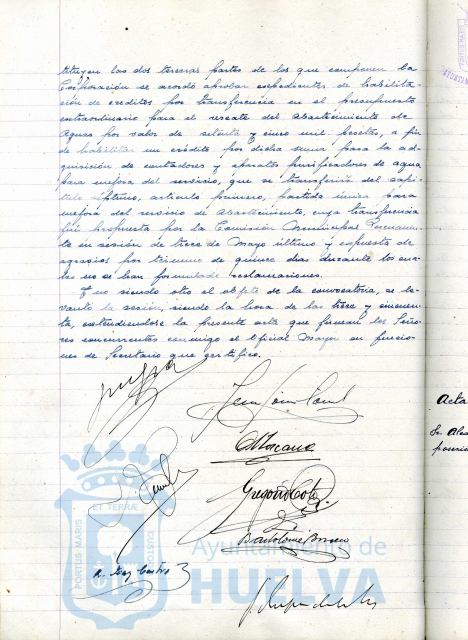 tituyen las dos terceras partes de los que componen la
Corporación se acordó aprobar expedientes de habilita-
ción de creditos por transferencia en el presupuesto
extraordinario para el rescate del abastecimiento de
aguas por valor de setenta y cinco mil pesetas, a fin
de habilitar un crédito por dicha suma para la ad-
quisición de contadores y aparatos purificadores de agua
para mejora del servicio, que se transferirá del capí-
tulo séptimo, artículo primero, partida única para
mejora del servicio de abastecimiento, cuya transferencia
fué propuesta por la Comisión Municipal Permanen-
te en sesión de trece de Mayo último y expuesta de
agravios por término de quince días durante los cua-
les no se han formulado reclamaciones.
Y no siendo otro el objeto de la convocatoria, se le-
vantó la sesión, siendo la hora de las trece y cincuen-
ta, extendiendose la presente acta que firman los Seño-
res concurrentes conmigo el Oficial Mayor en funcio-
nes de Secretario que certifico.
Gregorio Coto
Bartolomé
Acta
Sr. Alca
PORTUS MARIS
ET TERRÆ
CUSTODIA
Ayuntamiento de
HUELVA